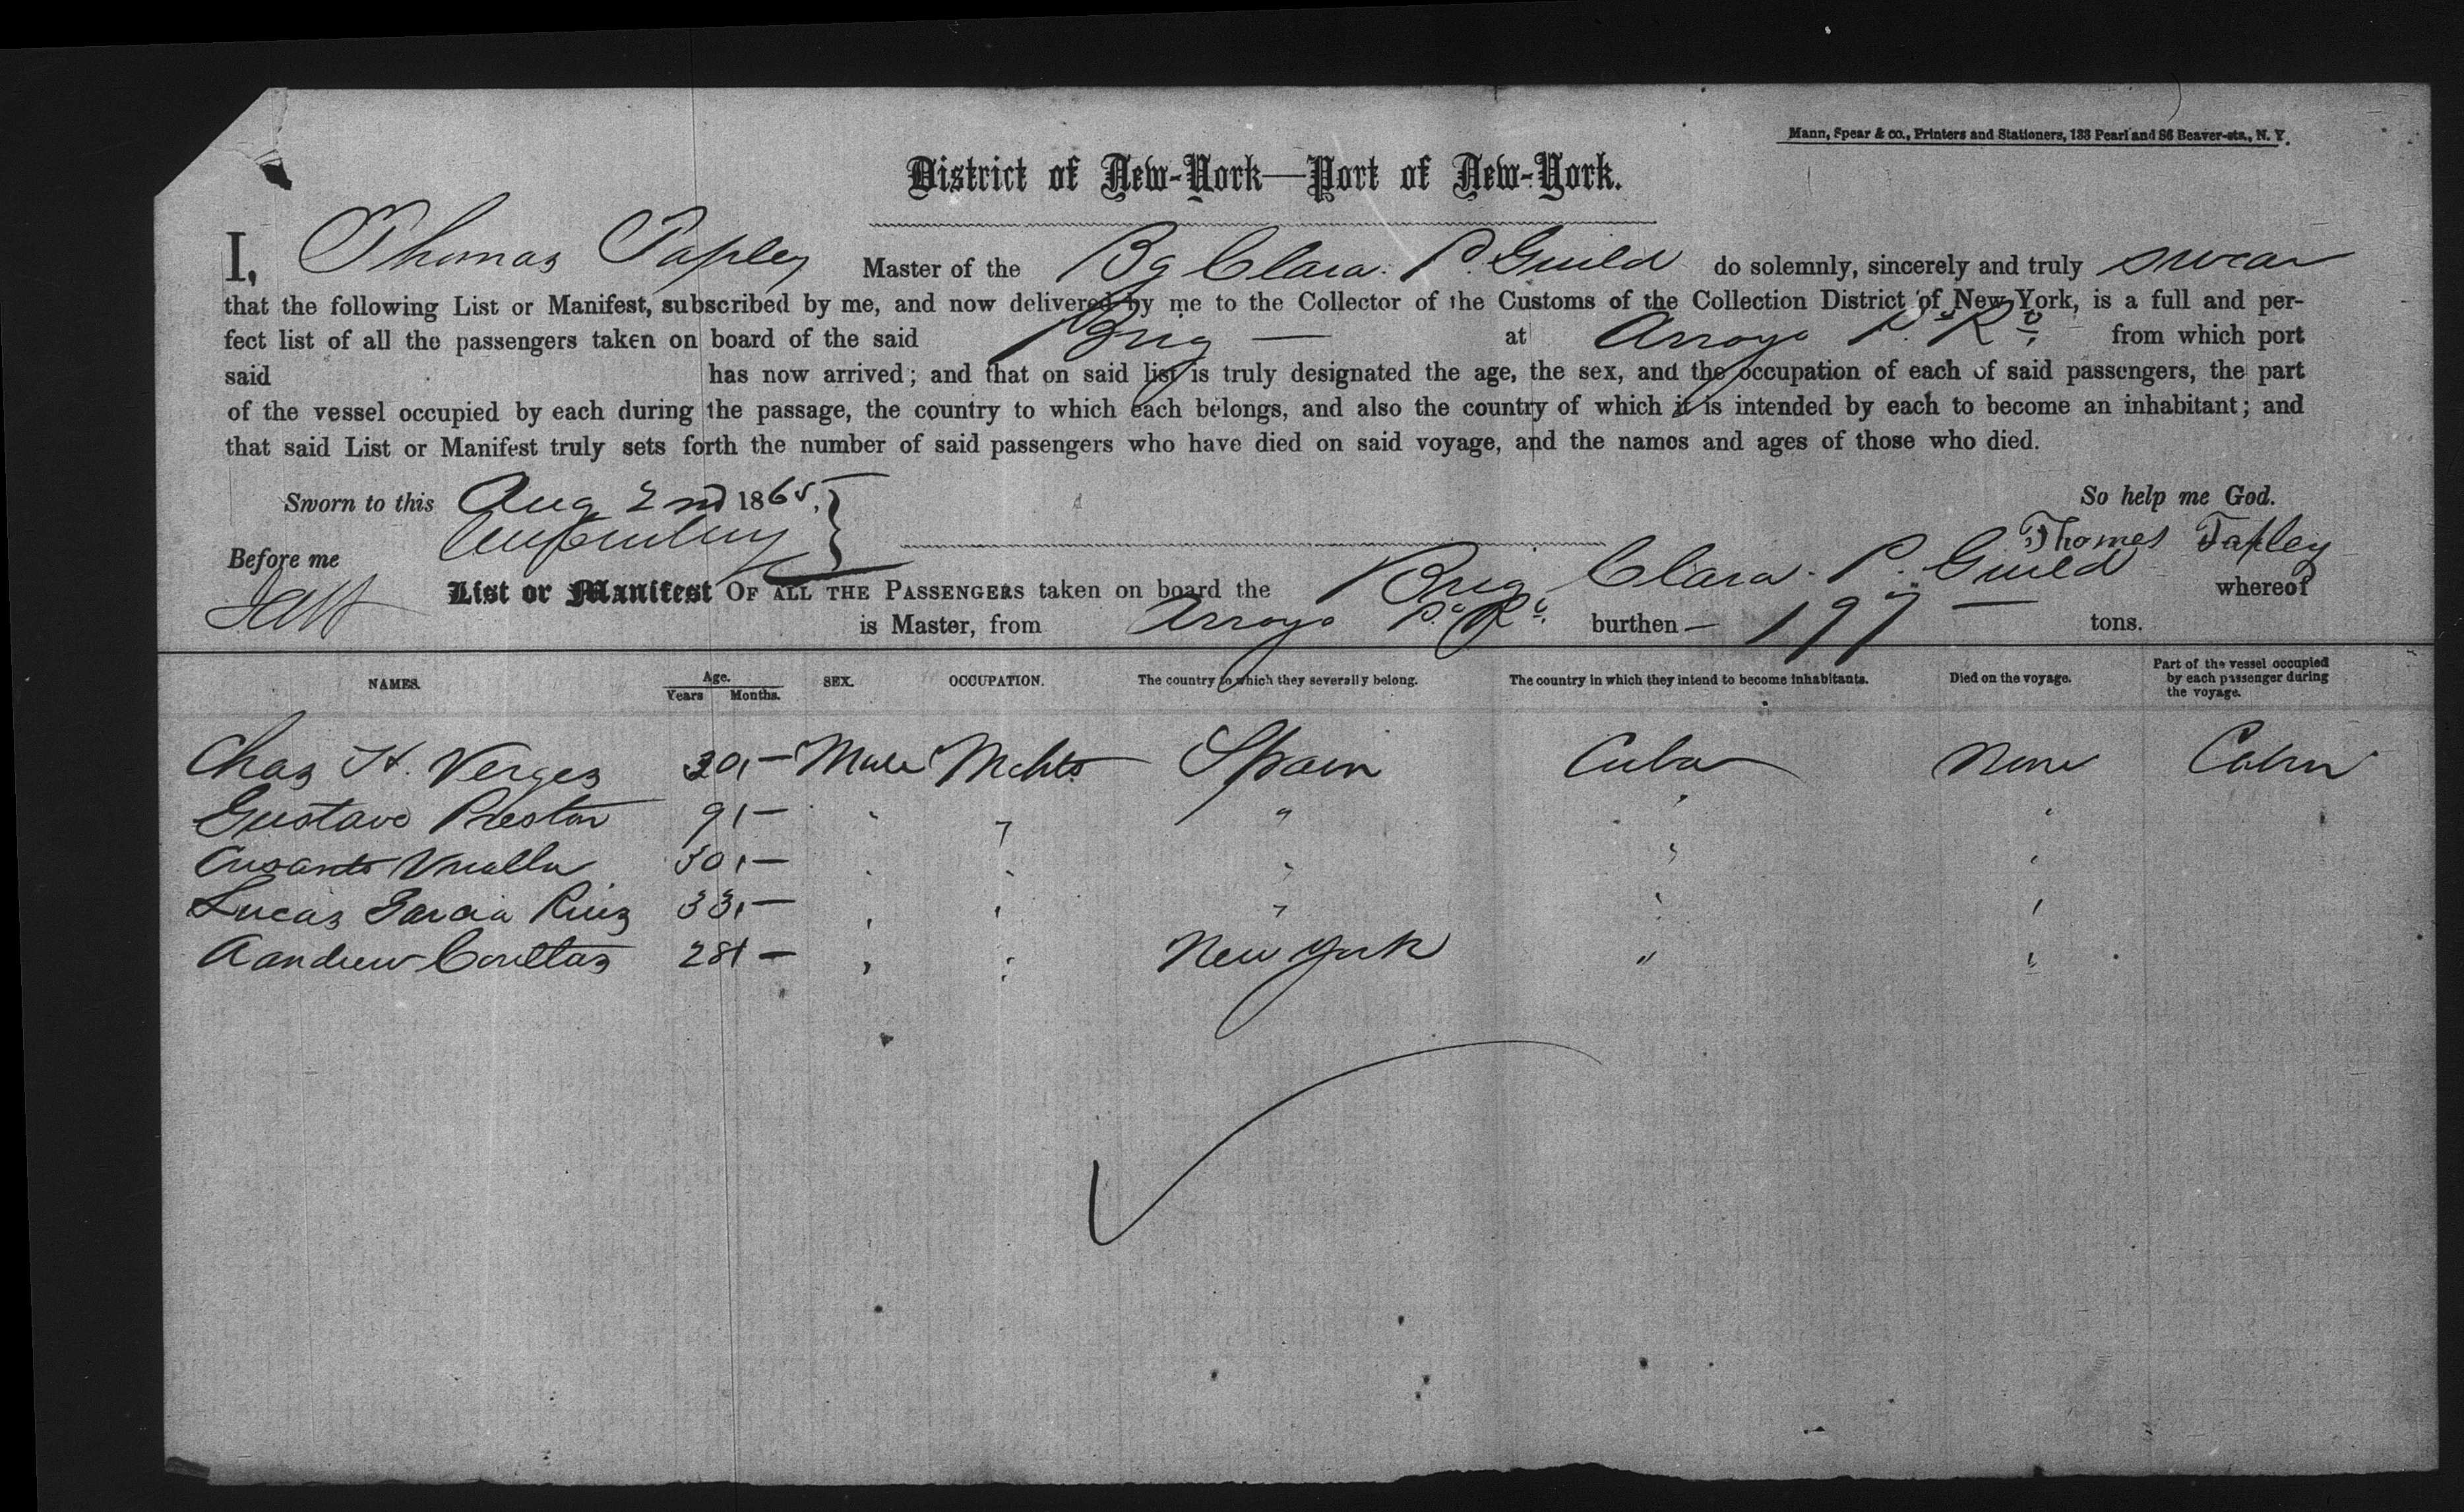 Mann, Spear & co., Printers and Stationers, 133 Pearl and 86 Beaver-sts., N. Y.
District of New-York—Port of New-York.
I, Thomas Tapley Master of the Bg Clara. P. Guild do solemnly, sincerely and truly swear
that the following List or Manifest, subscribed by me, and now delivered by me to the Collector of the Customs of the Collection District of New York, is a full and per-
fect list of all the passengers taken on board of the said Brig — at Arroyo P. Ro. from which port
said has now arrived; and that on said list is truly designated the age, the sex, and the occupation of each of said passengers, the part
of the vessel occupied by each during the passage, the country to which each belongs, and also the country of which it is intended by each to become an inhabitant; and
that said List or Manifest truly sets forth the number of said passengers who have died on said voyage, and the names and ages of those who died.
Sworn to this Aug 2nd 1865. So help me God.
Before me Thomas Tapley
List or Manifest OF ALL THE PASSENGERS taken on board the Brig Clara. P. Guild whereof
is Master, from Arroyo P. Ro. burthen — 197 — tons.
NAMES. Age. Years Months. SEX. OCCUPATION. The country to which they severally belong. The country in which they intend to become inhabitants. Died on the voyage. Part of the vessel occupied by each passenger during the voyage.
Chas H. Verges 30,— Male Mchts Spain Cuba None Cabin
Gustavo Preston 91— " " " " "
30,— " " " " "
Lucas Garcia Ruiz 33,— " " " " "
Aandrew 281— " " New York " "